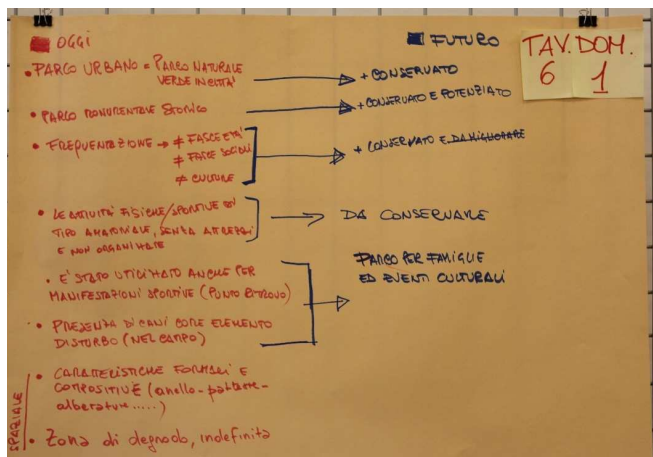 OGGI
FUTURO
TAV. DOM.
6 1
• PARCO URBANO = PARCO NATURALE
VERDE IN CITTA'
+ CONSERVATO
• PARCO MONUMENTALE STORICO
+ CONSERVATO E POTENZIATO
• FREQUENTAZIONE → ≠ FASCE ETA'
≠ FASCE SOCIALI
≠ CULTURE
+ CONSERVATO E DA MIGLIORARE
• LE ATTIVITA' FISICHE/SPORTIVE DI
TIPO AMATORIALE, SENZA ATTREZZI
E NON ORGANIZZATE
DA CONSERVARE
• E' STATO UTILIZZATO ANCHE PER
MANIFESTAZIONI SPORTIVE (PUNTO RITROVO)
• PRESENZA DI CANI COME ELEMENTO
DISTURBO (NEL CAMPO)
PARCO PER FAMIGLIE
ED EVENTI CULTURALI
SPAZIALE
• CARATTERISTICHE FORMALI E
COMPOSITIVE (anello-
alberature.....)
• Zona di degrado, indefinita